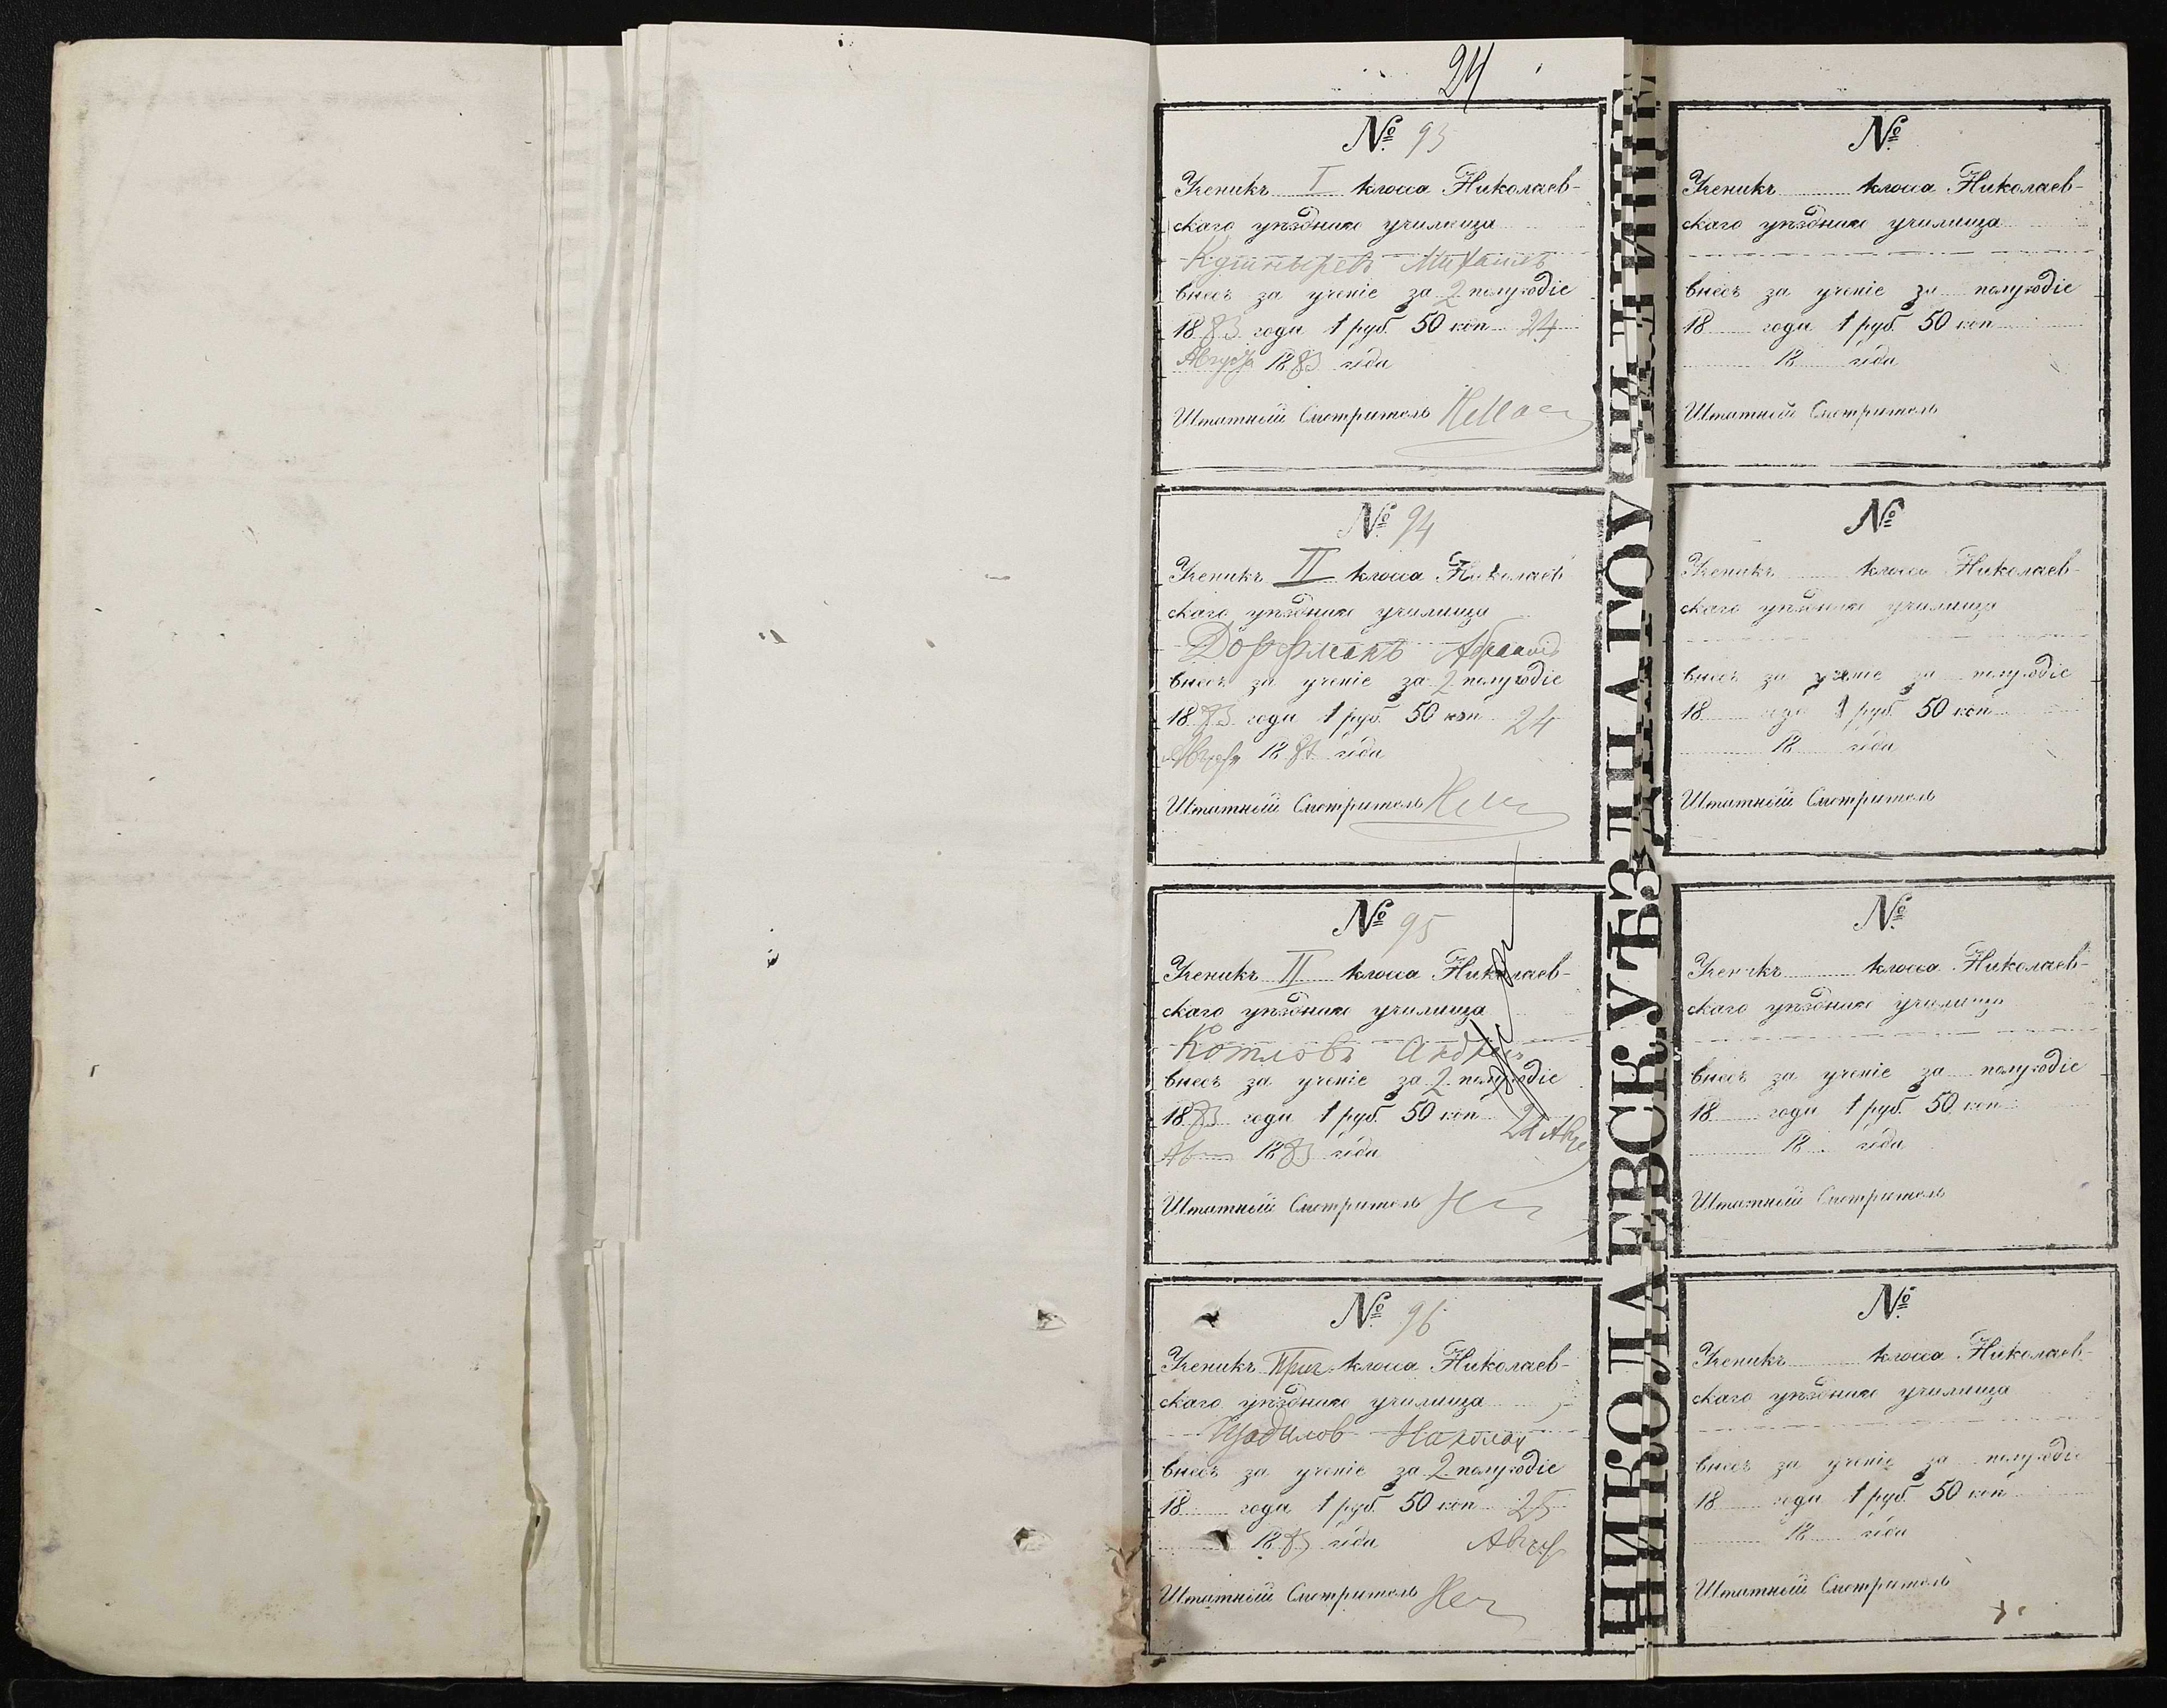 24
№ 93
Ученикъ I класса Николаев-
скаго уѣзднаго училища
Михаилъ
внесъ за ученіе за 2 полугодіе
1883 года 1 руб. 50 коп. 24
Августа 1883 года
Штатный Смотритель
№ 94
Ученикъ II класса Николаев-
скаго уѣзднаго училища
Дорфманъ Абрамъ
внесъ за ученіе за 2 полугодіе
1883 года 1 руб. 50 коп. 24
18 года
Штатный Смотритель
№ 95
Ученикъ II класса Николаев-
скаго уѣзднаго училища
Котловъ Андрей
внесъ за ученіе за 2 полугодіе
1883 года 1 руб. 50 коп. 24 Авг
1883 года
Штатный Смотритель
№ 96
Ученикъ Приг. класса Николаев-
скаго уѣзднаго училища
Николай
внесъ за ученіе за 2 полугодіе
18 года 1 руб. 50 коп. 25
1883 года Август
Штатный Смотритель
НИКОЛАЕВСК. УѢЗДНАГО УЧИЛИЩА
№
Ученикъ класса Николаев-
скаго уѣзднаго училища
внесъ за ученіе за полугодіе
18 года 1 руб. 50 коп.
18 года
Штатный Смотритель
№
Ученикъ класса Николаев-
скаго уѣзднаго училища
внесъ за ученіе за полугодіе
18 года 1 руб. 50 коп.
18 года
Штатный Смотритель
№
Ученикъ класса Николаев-
скаго уѣзднаго училища
внесъ за ученіе за полугодіе
18 года 1 руб. 50 коп.
18 года
Штатный Смотритель
№
Ученикъ класса Николаев-
скаго уѣзднаго училища
внесъ за ученіе за полугодіе
18 года 1 руб. 50 коп.
18 года
Штатный Смотритель